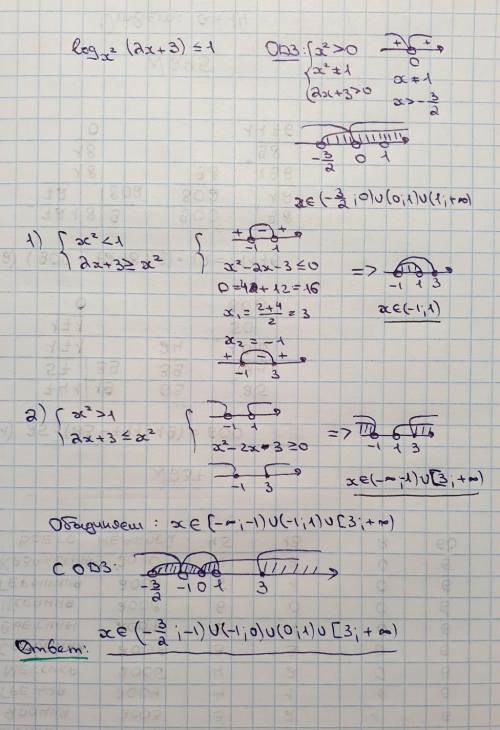 log_{x²} (2x+3) ≤ 1
ОДЗ: { x² > 0
x² ≠ 1
2x+3 > 0
+ +
0
x ≠ 1
x > -3/2
-3/2 0 1
x ∈ (-3/2; 0) ∪ (0; 1) ∪ (1; +∞)
1) { x² < 1
2x+3 ≥ x²
{ + - +
-1 1
x² - 2x - 3 ≤ 0
D = 4 + 12 = 16
x₁ = (2+4)/2 = 3
x₂ = -1
+ - +
-1 3
=> -1 1 3
x ∈ (-1; 1)
2) { x² > 1
2x+3 ≤ x²
{ -1 1
x² - 2x - 3 ≥ 0
-1 3
=> -1 1 3
x ∈ (-∞; -1) ∪ [3; +∞)
Объединяем: x ∈ (-∞; -1) ∪ (-1; 1) ∪ [3; +∞)
С ОДЗ:
-3/2 -1 0 1 3
Ответ: x ∈ (-3/2; -1) ∪ (-1; 0) ∪ (0; 1) ∪ [3; +∞)